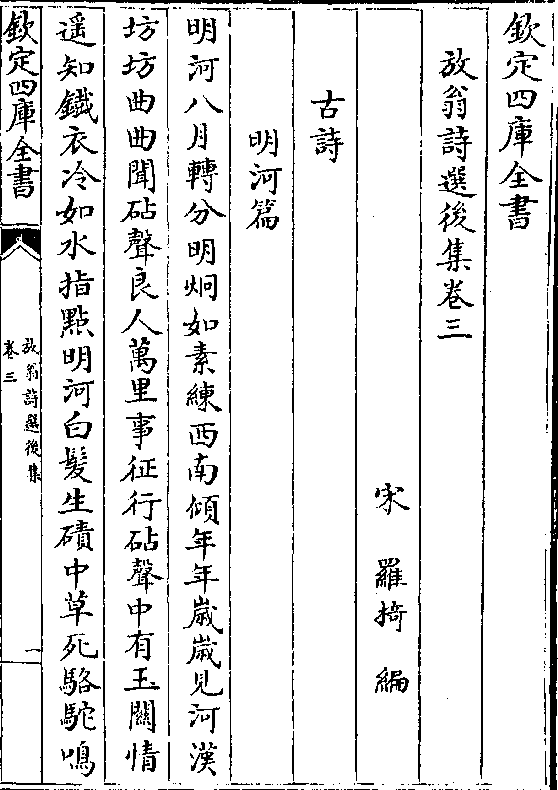 欽定四庫全書
放翁詩選後集卷三
宋　羅椅　編
古詩
明河篇
明河八月轉分明炯如素練西南傾年年歲歲見河漢
坊坊曲曲聞砧聲良人萬里事征行砧聲中有玉關情
遥知鐵衣冷如水指點明河白髪生磧中草死駱駝鳴
欽定四庫全書
放翁詩選後集
卷三
一